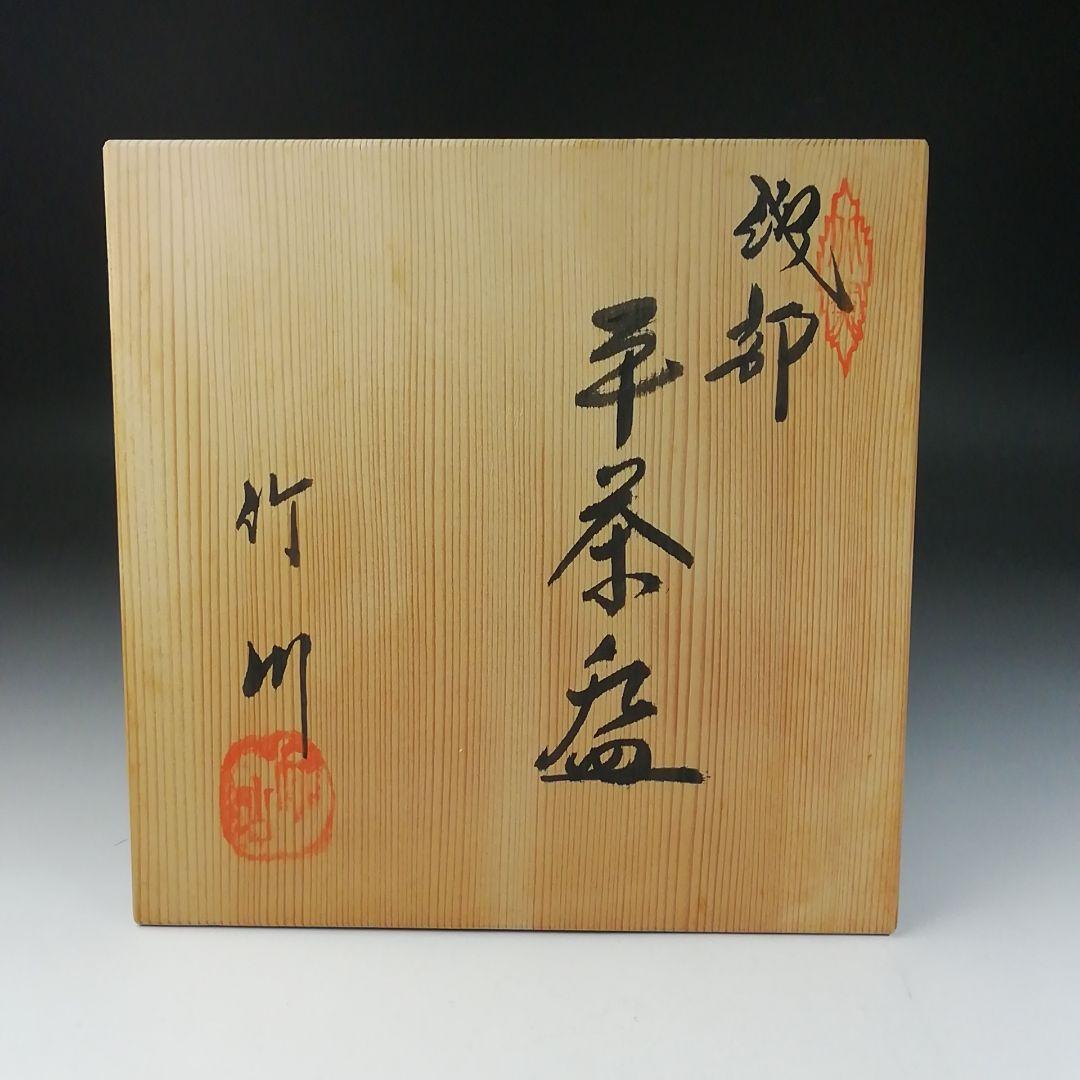 織部
平茶盌
竹川